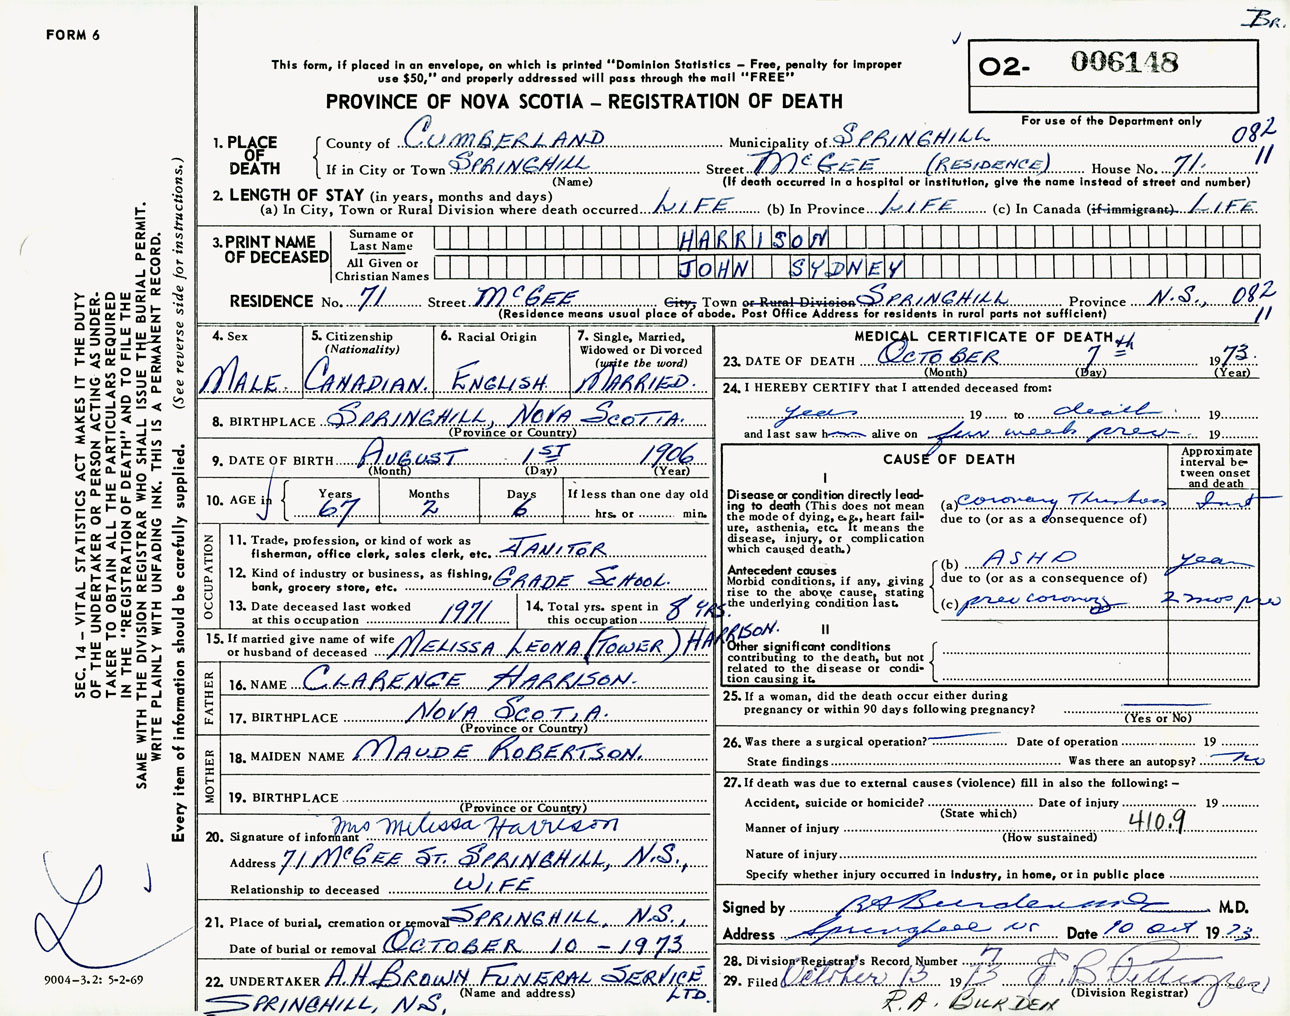 FORM 6
Br.
This form, if placed in an envelope, on which is printed "Dominion Statistics – Free, penalty for improper
use $50," and properly addressed will pass through the mail "FREE"
PROVINCE OF NOVA SCOTIA – REGISTRATION OF DEATH
02- 006148
For use of the Department only
SEC. 14 – VITAL STATISTICS ACT MAKES IT THE DUTY
OF THE UNDERTAKER OR PERSON ACTING AS UNDER-
TAKER TO OBTAIN ALL THE PARTICULARS REQUIRED
IN THE "REGISTRATION OF DEATH" AND TO FILE THE
SAME WITH THE DIVISION REGISTRAR WHO SHALL ISSUE THE BURIAL PERMIT.
WRITE PLAINLY WITH UNFADING INK. THIS IS A PERMANENT RECORD.
Every item of information should be carefully supplied. (See reverse side for instructions.)
1. PLACE OF DEATH
County of CUMBERLAND Municipality of SPRINGHILL 082
If in City or Town SPRINGHILL Street McGEE (RESIDENCE) House No. 71. 11
(Name) (If death occurred in a hospital or institution, give the name instead of street and number)
2. LENGTH OF STAY (in years, months and days)
(a) In City, Town or Rural Division where death occurred LIFE (b) In Province LIFE (c) In Canada (if immigrant) LIFE
3. PRINT NAME OF DECEASED
Surname or Last Name HARRISON
All Given or Christian Names JOHN SYDNEY
RESIDENCE No. 71 Street McGEE City, Town or Rural Division SPRINGHILL Province N.S., 082
(Residence means usual place of abode. Post Office Address for residents in rural parts not sufficient) 11
4. Sex
MALE.
5. Citizenship (Nationality)
CANADIAN.
6. Racial Origin
ENGLISH.
7. Single, Married, Widowed or Divorced (write the word)
MARRIED.
8. BIRTHPLACE SPRINGHILL, NOVA SCOTIA.
(Province or Country)
9. DATE OF BIRTH AUGUST 1ST 1906
(Month) (Day) (Year)
10. AGE in Years 67 Months 2 Days 6 If less than one day old hrs. or min.
OCCUPATION
11. Trade, profession, or kind of work as
fisherman, office clerk, sales clerk, etc. JANITOR
12. Kind of industry or business, as fishing,
bank, grocery store, etc. GRADE SCHOOL.
13. Date deceased last worked at this occupation 1971
14. Total yrs. spent in this occupation 8 YRS.
15. If married give name of wife
or husband of deceased MELISSA LEONA (TOWER) HARRISON.
FATHER
16. NAME CLARENCE HARRISON.
17. BIRTHPLACE NOVA SCOTIA.
(Province or Country)
MOTHER
18. MAIDEN NAME MAUDE ROBERTSON.
19. BIRTHPLACE
(Province or Country)
20. Signature of informant Mrs Melissa Harrison
Address 71 McGEE ST. SPRINGHILL, N.S.,
Relationship to deceased WIFE
21. Place of burial, cremation or removal SPRINGHILL, N.S.,
Date of burial or removal OCTOBER 10 – 1973
22. UNDERTAKER A.H. BROWN FUNERAL SERVICE LTD.
(Name and address)
SPRINGHILL, N.S.
9004-3.2: 5-2-69
MEDICAL CERTIFICATE OF DEATH
23. DATE OF DEATH OCTOBER 7th 1973.
(Month) (Day) (Year)
24. I HEREBY CERTIFY that I attended deceased from:
years 19 to death 19
and last saw h alive on few weeks prev 19
CAUSE OF DEATH
Approximate interval between onset and death
I
Disease or condition directly lead-
ing to death (This does not mean
the mode of dying, e.g., heart fail-
ure, asthenia, etc. It means the
disease, injury, or complication
which caused death.)
(a) Coronary Thrombosis Inst
due to (or as a consequence of)
Antecedent causes
Morbid conditions, if any, giving
rise to the above cause, stating
the underlying condition last.
(b) ASHD years
due to (or as a consequence of)
(c) prev coronary 2 mos prev
II
Other significant conditions
contributing to the death, but not
related to the disease or condi-
tion causing it.
25. If a woman, did the death occur either during
pregnancy or within 90 days following pregnancy?
(Yes or No)
26. Was there a surgical operation? Date of operation 19
State findings Was there an autopsy? no
27. If death was due to external causes (violence) fill in also the following: –
Accident, suicide or homicide? Date of injury 19
(State which)
Manner of injury 410.9
(How sustained)
Nature of injury
Specify whether injury occurred in industry, in home, or in public place
Signed by RA Burden M.D.
Address Springhill NS Date 10 Oct 1973
28. Division Registrar's Record Number 7
29. Filed October 13 1973 F. B. Pettigrew
(Division Registrar)
R.A. BURDEN